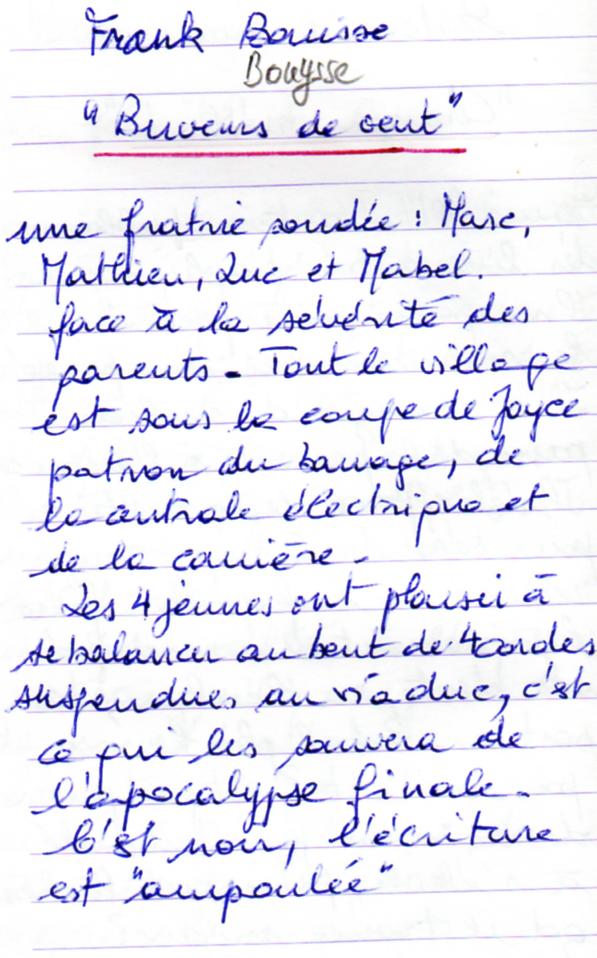 Frank Bouisse
Bouysse
"Buveurs de vent"
une fratrie soudée : Marc,
Mathieu, Luc et Mabel.
face à la sévérité des
parents. Tout le village
est sous la coupe de Joyce
patron du barrage, de
la centrale électrique et
de la carrière.
Les 4 jeunes ont plaisir à
se balancer au bout de 4 cordes
suspendues au viaduc, c'est
ce qui les sauvera de
l'apocalypse finale.
C'est noir, l'écriture
est "ampoulée"